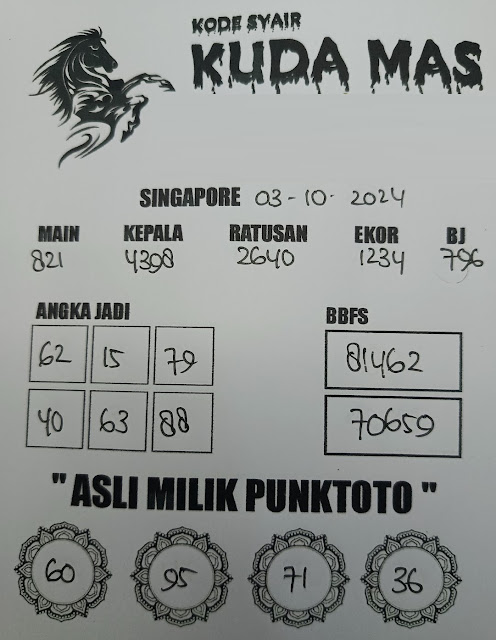 KODE SYAIR
KUDA MAS
SINGAPORE 03-10-2024
MAIN KEPALA RATUSAN EKOR BJ
821 4398 2640 1234 796
ANGKA JADI BBFS
62 15 79 81462
40 63 88 70659
"ASLI MILIK PUNKTOTO"
60 95 71 36